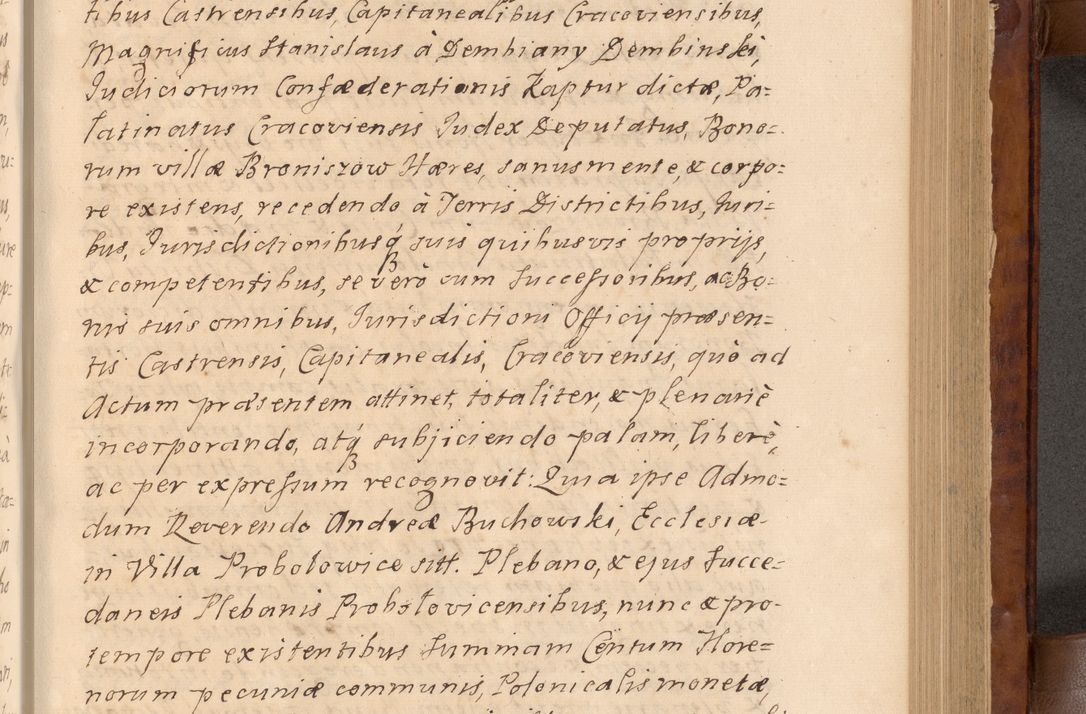 tibus Castrensibus, Capitanealibus Cracoviensibus,
Magnificus Stanislaus à Dembiany Dembinski,
Judiciorum Confæderationis Kaptur dictæ, Pa=
latinatus Cracoviensis Judex Deputatus, Bono=
rum villæ Broniszow Hæres, sanus mente, & corpo=
re existens, recedendo à Terris Districtibus, Juri=
bus, Jurisdictionibusq́ʒ suis quibusvis proprijs,
& competentibus, se verò cum successoribus, ac Bo=
nis suis omnibus, Jurisdictioni Officij præsen=
tis Castrensis, Capitanealis, Cracoviensis, quò ad
Actum præsentem attinet, totaliter, & plenariè
incorporando, atq́ʒ subjiciendo palam, liberè,
ac per expressum recognovit: Quia ipse Admo=
dum Reverendo Andreæ Buchowski, Ecclesiæ
in Villa Probolowice sitt. Plebano, & ejus Succe=
daneis Plebanis Probolovicensibus, nunc & pro
tempore existentibus Summam Centum Flore=
norum pecuniæ communis, Polonicalis monetæ,